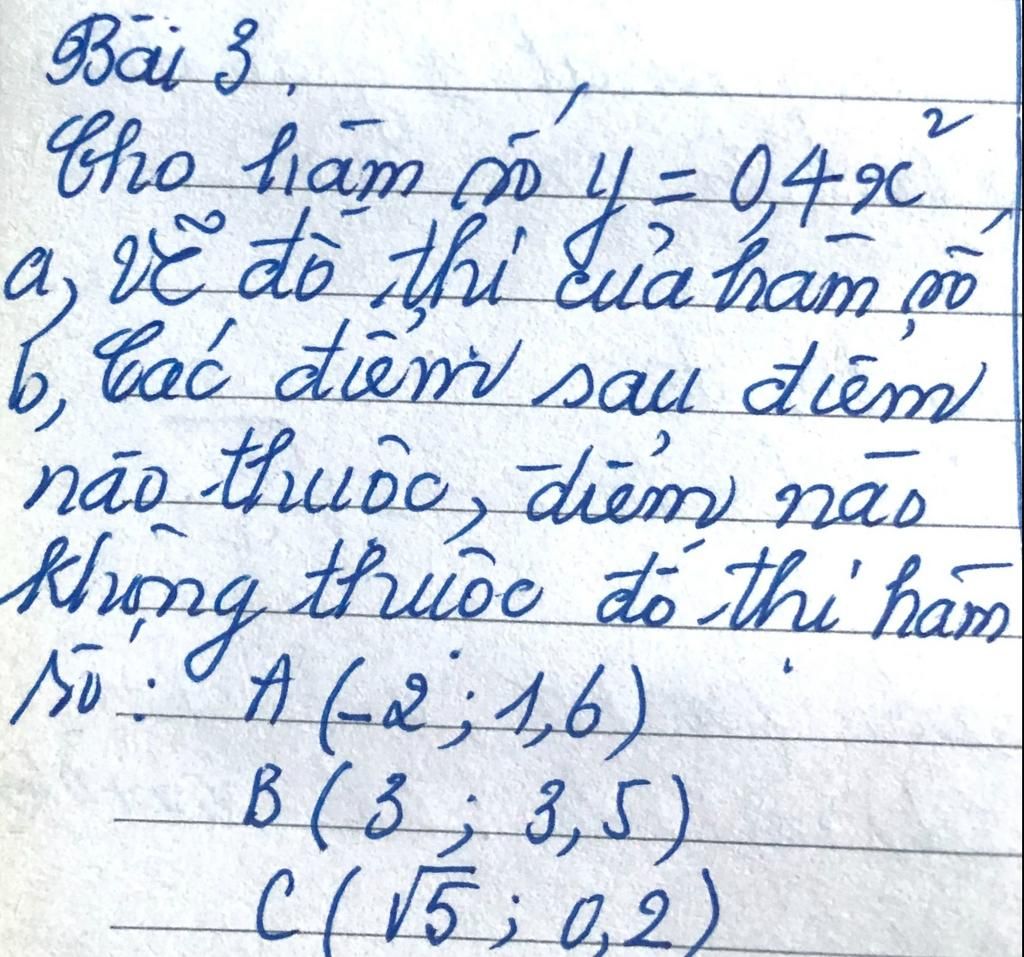 Bài 3.
Cho hàm số y = 0,4x²
a, vẽ đồ thị của hàm số
b, Các điểm sau điểm
nào thuộc, điểm nào
không thuộc đồ thị hàm
số : A (-2 ; 1,6)
B ( 3 ; 3,5)
C ( √5 ; 0,2)